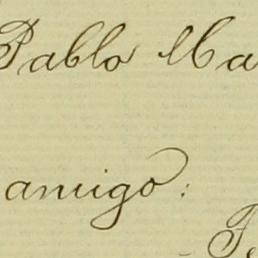 Pablo Ma
amigo:
Te